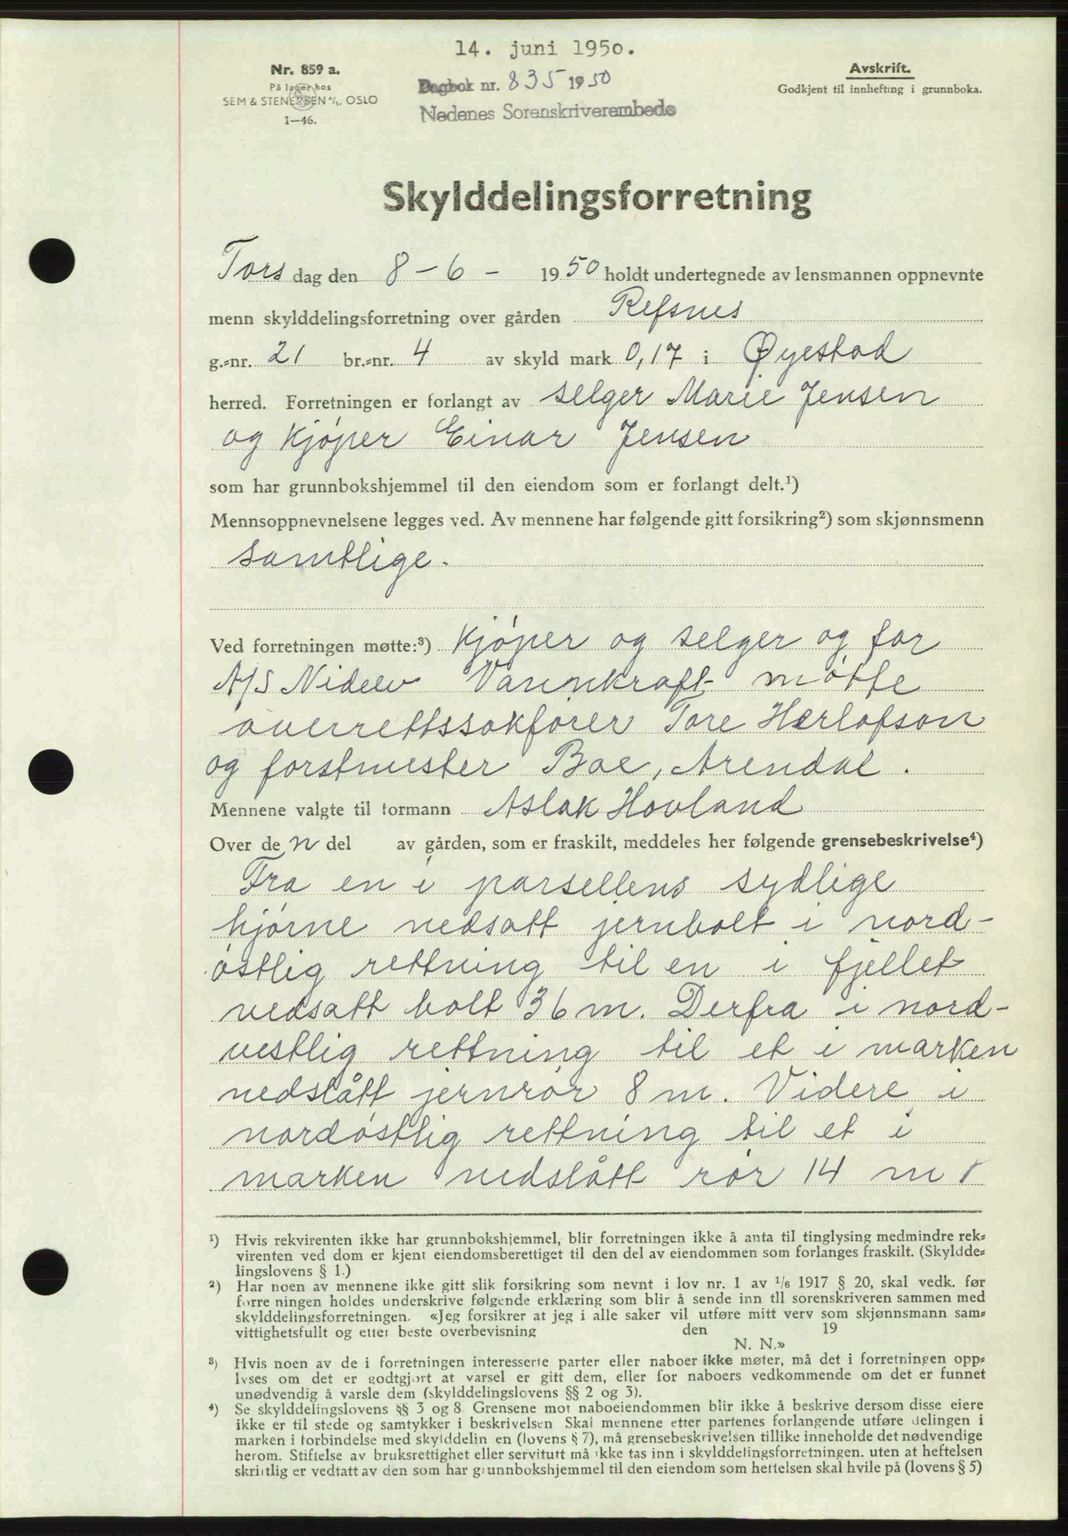 14. juni 1950.
Nr. 859 a.
På lager hos
SEM & STENERSEN A/S. OSLO
1—46.
Dagbok nr. 835 1950
Nedenes Sorenskriverembede
Avskrift.
Godkjent til innhefting i grunnboka.
Skylddelingsforretning
Tors dag den 8 - 6 - 1950 holdt undertegnede av lensmannen oppnevnte
menn skylddelingsforretning over gården Refsnes
g.-nr. 21 br.-nr. 4 av skyld mark 0,17 i Øyestad
herred. Forretningen er forlangt av selger Marie Jensen
og kjøper Einar Jensen
som har grunnbokshjemmel til den eiendom som er forlangt delt.¹)
Mennsoppnevnelsene legges ved. Av mennene har følgende gitt forsikring²) som skjønnsmenn
samtlige.
Ved forretningen møtte:³) kjøper og selger og for
A/S Nidelv Vannkraft møtte
overrettssakfører Tore Herlofson
og forstmester Boe, Arendal.
Mennene valgte til formann Aslak Hovland
Over de n del av gården, som er fraskilt, meddeles her følgende grensebeskrivelse⁴)
Fra en i parsellens sydlige
hjørne nedsatt jernbolt i nord-
østlig rettning til en i fjellet
nedsatt bolt 36 m. Derfra i nord-
vestlig rettning til et i marken
nedslått jernrør 8 m. Videre i
nordøstlig rettning til et i
marken nedslått rør 14 m
¹) Hvis rekvirenten ikke har grunnbokshjemmel, blir forretningen ikke å anta til tinglysing medmindre rek-
virenten ved dom er kjent eiendomsberettiget til den del av eiendommen som forlanges fraskilt. (Skyldde-
lingslovens § 1.)
²) Har noen av mennene ikke gitt slik forsikring som nevnt i lov nr. 1 av 1/6 1917 § 20, skal vedk. før
forretningen holdes underskrive følgende erklæring som blir å sende inn til sorenskriveren sammen med
skylddelingsforretningen. «Jeg forsikrer at jeg i alle saker vil utføre mitt verv som skjønnsmann sam-
vittighetsfullt og etter beste overbevisning den 19
N. N.»
³) Hvis noen av de i forretningen interesserte parter eller naboer ikke møter, må det i forretningen opp-
lyses om det er godtgjort at varsel er gitt dem, eller for naboers vedkommende om det er funnet
unødvendig å varsle dem (skylddelingslovens §§ 2 og 3).
⁴) Se skylddelingslovens §§ 3 og 8. Grensene mot naboeiendommen blir ikke å beskrive dersom disse eiere
ikke er til stede og samtykker i beskrivelsen Skal mennene etter partenes forlangende utføre delingen i
marken i forbindelse med skylddelingen (lovens § 7), må grensebeskrivelsen tillike inneholde det nødvendige
herom. Stiftelse av bruksrettighet eller servitutt må ikke tas inn i skylddelingsforretningen. uten at heftelsen
skriftlig er vedtatt av den som har grunnbokshjemmel til den eiendom som heftelsen skal hvile på (lovens § 5)